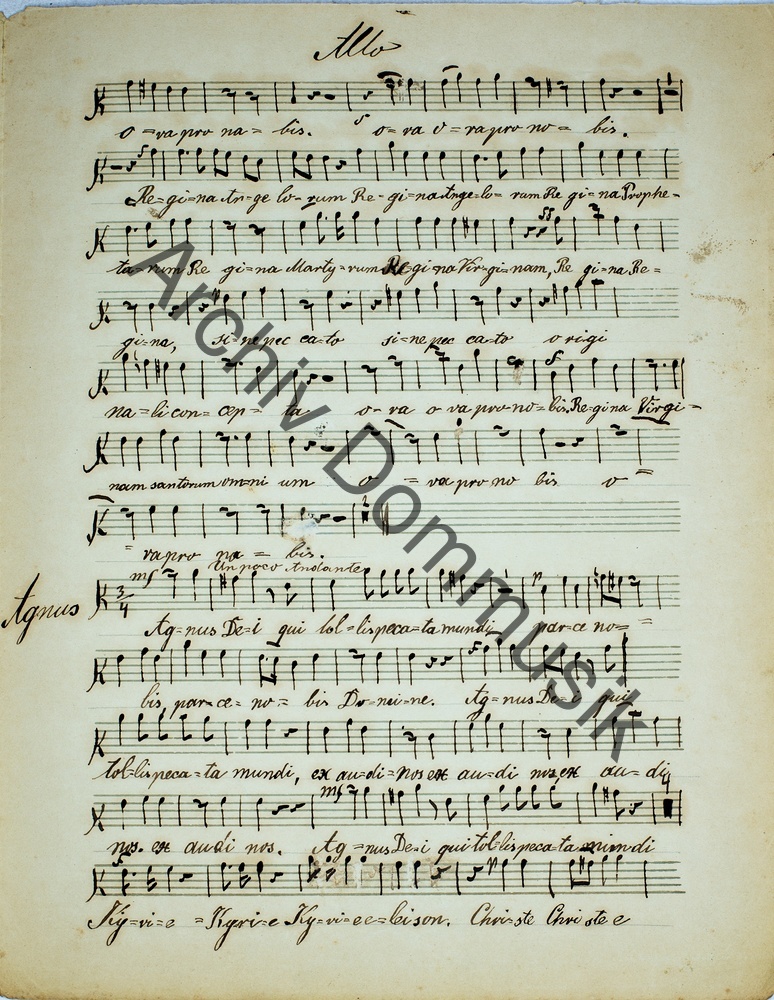 Alto
o = ra pro no = bis. o = ra o = ra pro no = bis.
Re = gi = na An = ge lo = rum Re = gi = na Ange = lo = rum Re gi = na Prophe =
ta = rum Re gi = na Marty = rum Re = gi = na Vir = gi = nam, Re gi = na Re =
gi = na, si = ne pec ca = to si = ne pec ca = to o ri gi
na = li con = cep = ta o = ra o ra pro = no = bis, Re = gi na Virgi =
nam santorum om = ni um o = ra pro no bis o =
= ra pro no = bis.
mf Un poco Andante
3/4
Agnus
Ag = nus De = i qui tol = lis peca = ta mundi par = ce no =
bis, par = ce = no = bis Do = mi = ne. Ag = nus De = i qui
tol = lis peca = ta mundi, ex au = di = nos ex au = di nos, ex au = di
mf 4
nos. ex audi nos. Ag = nus De = i qui tol = lis peca = ta mundi
Ky = ri = e = Kyri = e Ky = ri = e e = lei son. Chri = ste Chri ste e
Archiv Dommusik